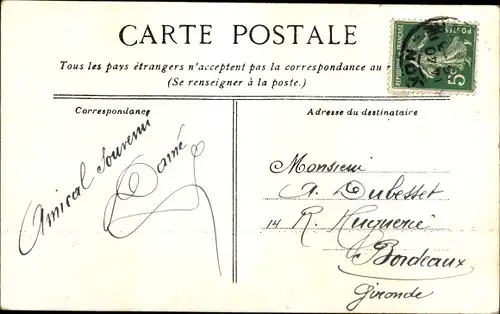 CARTE POSTALE
Tous les pays étrangers n'acceptent pas la correspondance au
(Se renseigner à la poste.)
Correspondance
Adresse du destinataire
Amical Souvenir
Monsieur
A. Dubesset
14 R. Huguerie
Bordeaux
Gironde
POSTES
5c